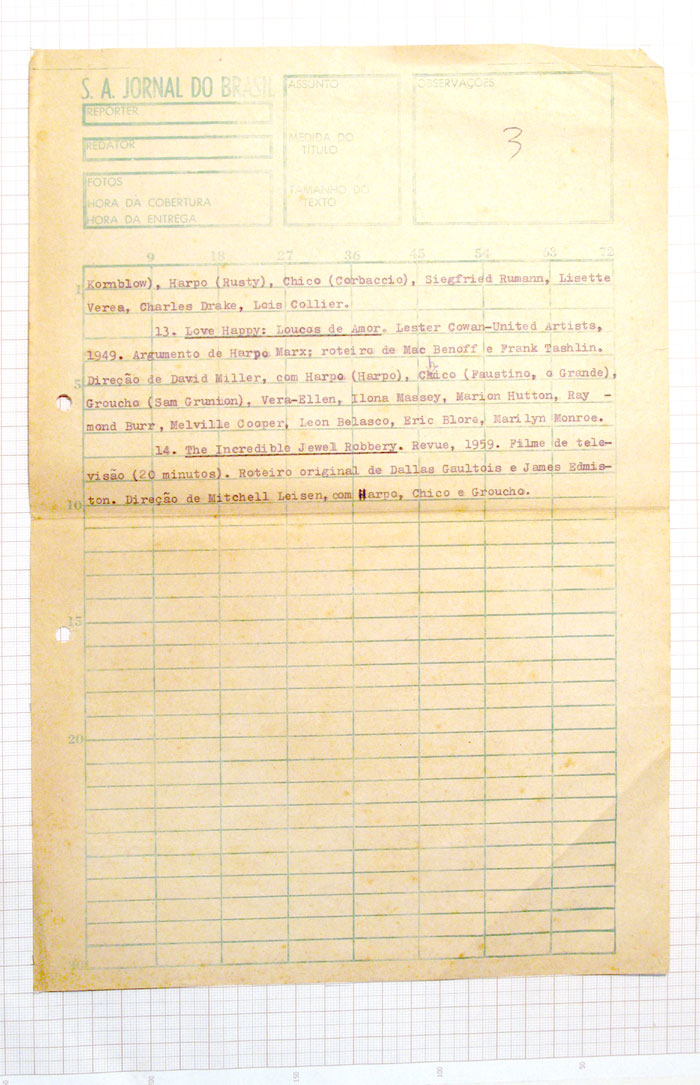 S. A. JORNAL DO BRASIL
REPÓRTER
REDATOR
FOTOS
HORA DA COBERTURA
HORA DA ENTREGA
ASSUNTO
MEDIDA DO
TÍTULO
TAMANHO DO
TEXTO
OBSERVAÇÕES
3
9 18 27 36 45 54 63 72
1
Kornblow), Harpo (Rusty), Chico (Corbaccio), Siegfried Rumann, Lisette
Verea, Charles Drake, Lois Collier.
13. Love Happy: Loucos de Amor. Lester Cowan-United Artists,
1949. Argumento de Harpo Marx; roteiro de Mac Benoff e Frank Tashlin.
5
Direção de David Miller, com Harpo (Harpo), Chico (Faustino, o Grande),
Groucho (Sam Grunion), Vera-Ellen, Ilona Massey, Marion Hutton, Ray -
mond Burr, Melville Cooper, Leon Belasco, Eric Blore, Marilyn Monroe.
14. The Incredible Jewel Robbery. Revue, 1959. Filme de tele-
visão (20 minutos). Roteiro original de Dallas Gaultois e James Edmis-
10
ton. Direção de Mitchell Leisen, com Harpo, Chico e Groucho.
15
20
150
100
50